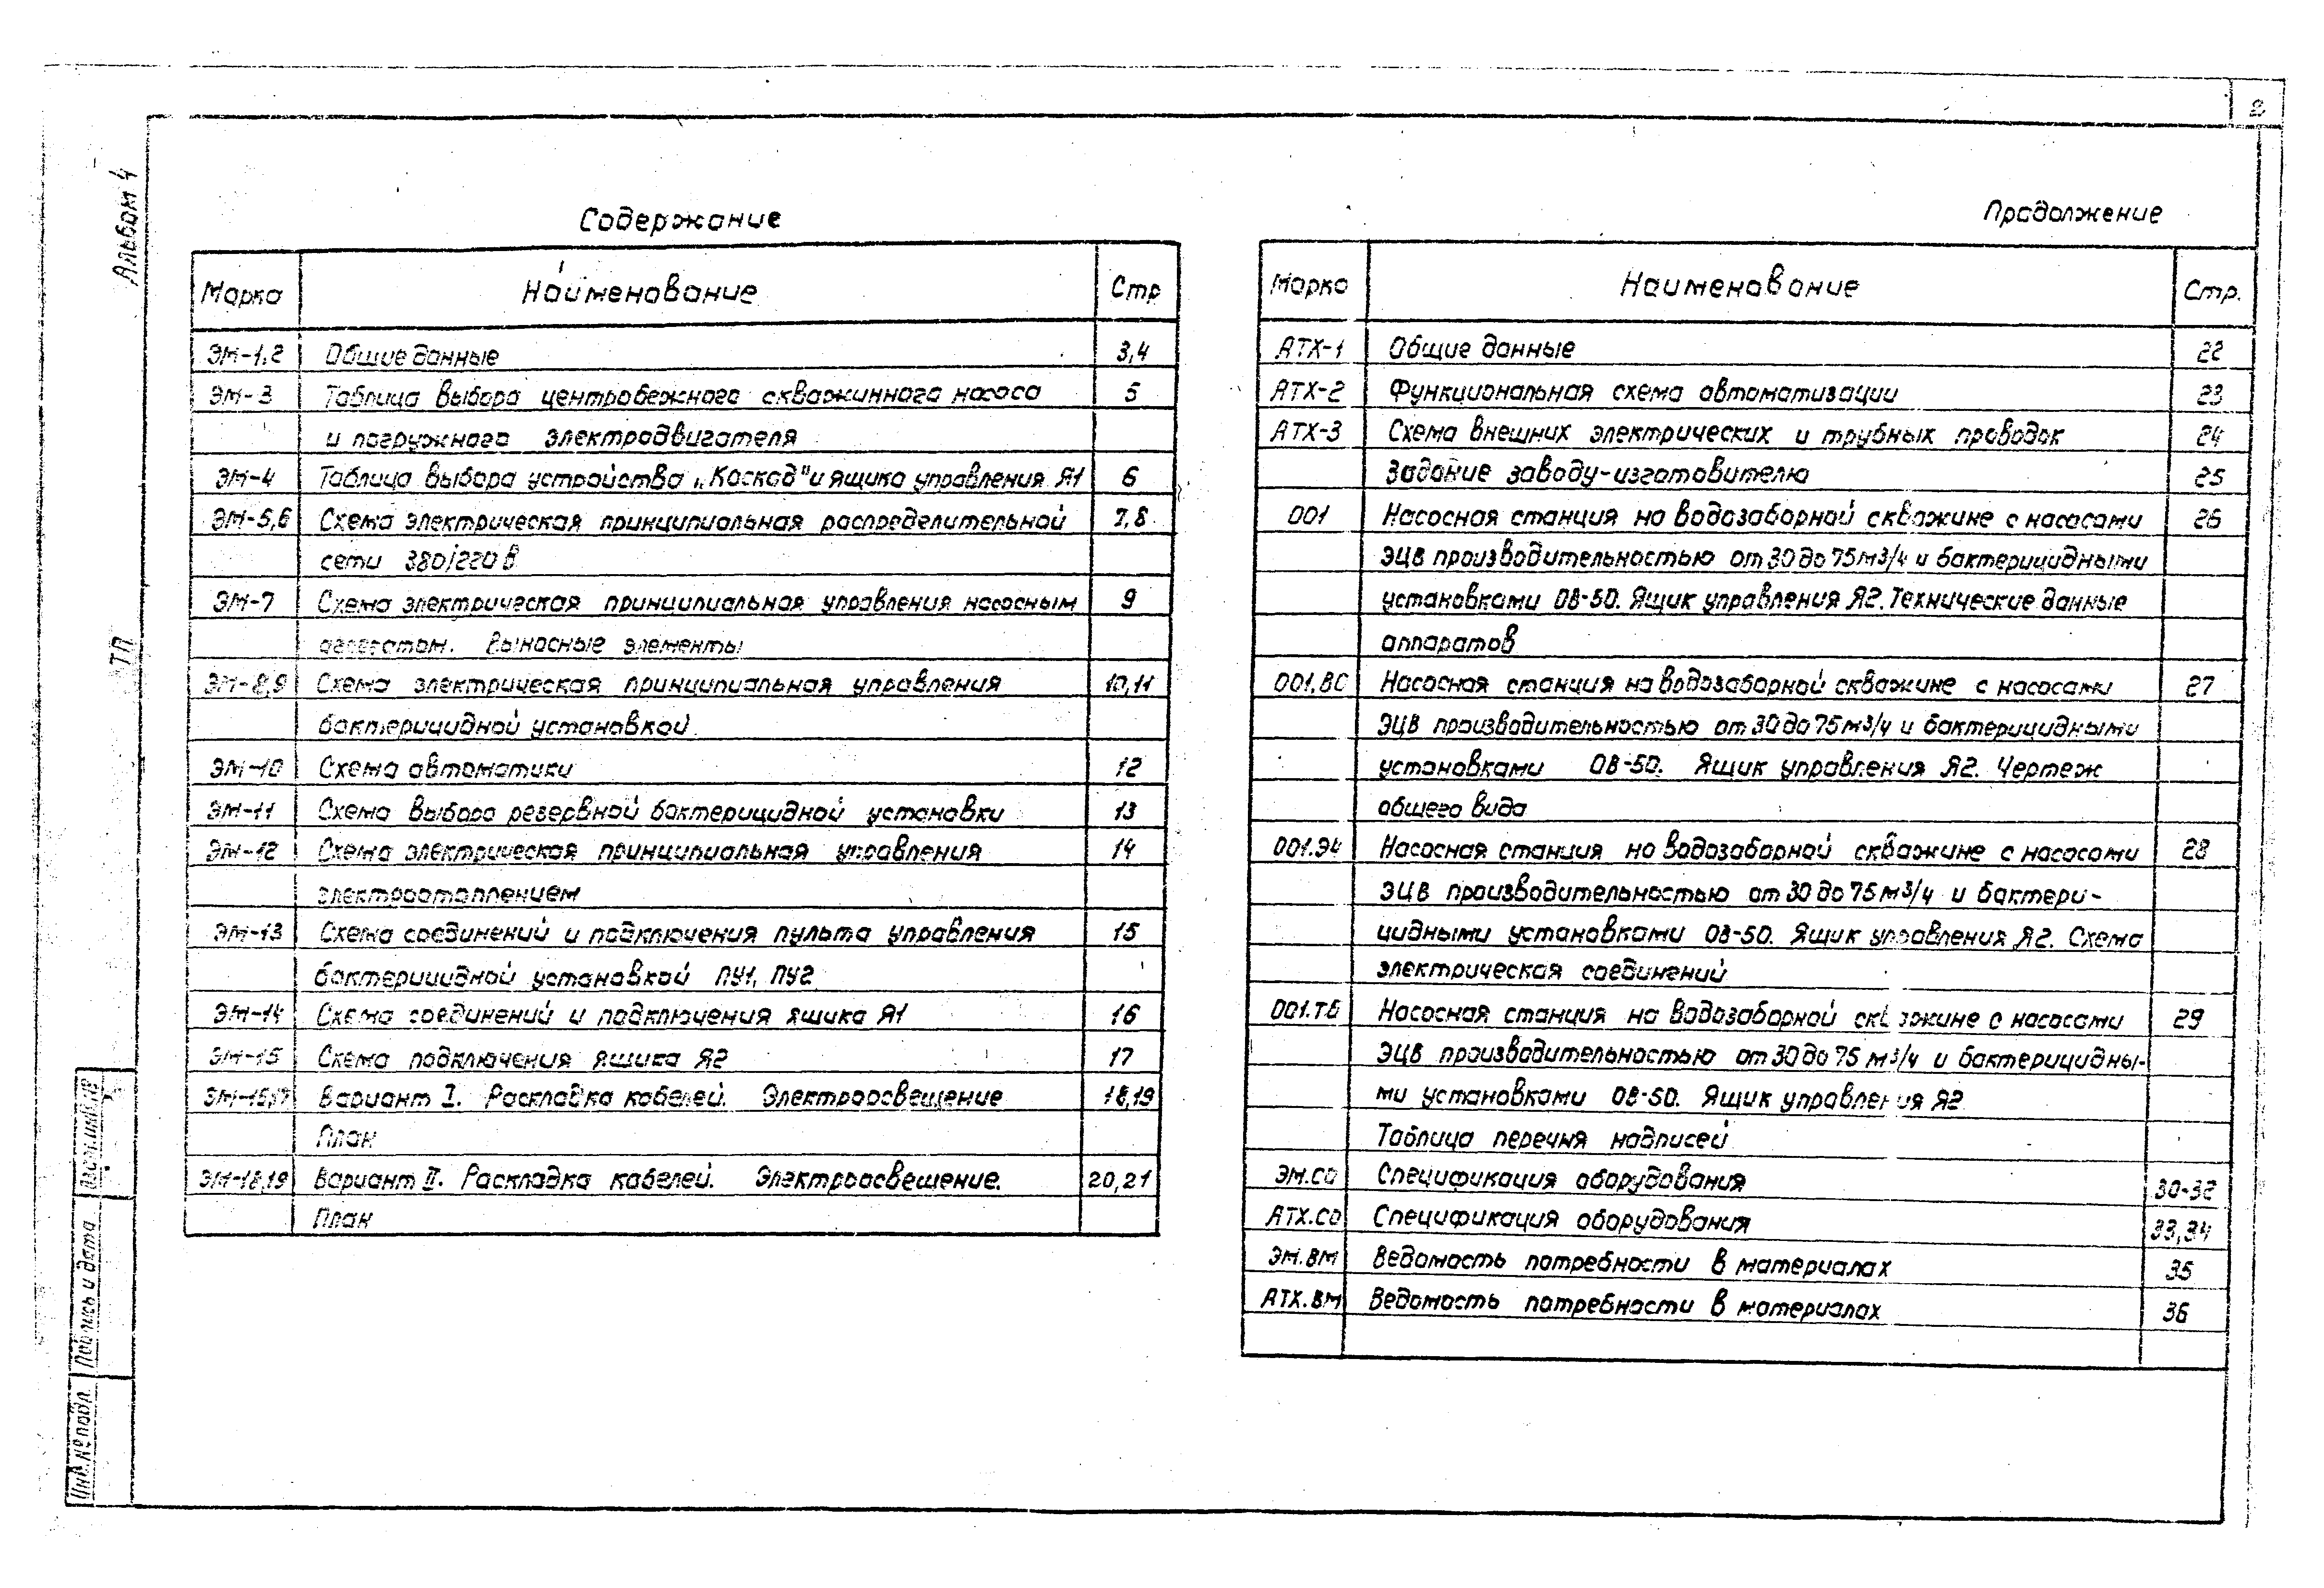 2
Альбом 4
ТП
Содержание
Марка Наименование Стр
ЭМ-1,2 Общие данные 3,4
ЭМ-3 Таблица выбора центробежного скважинного насоса 5
и погружного электродвигателя
ЭМ-4 Таблица выбора устройства „Каскад" и ящика управления Я1 6
ЭМ-5,6 Схема электрическая принципиальная распределительной 7,8
сети 380/220 В
ЭМ-7 Схема электрическая принципиальная управления насосным 9
агрегатом. Выносные элементы
ЭМ-8,9 Схема электрическая принципиальная управления 10,11
бактерицидной установкой
ЭМ-10 Схема автоматики 12
ЭМ-11 Схема выбора резервной бактерицидной установки 13
ЭМ-12 Схема электрическая принципиальная управления 14
электроотоплением
ЭМ-13 Схема соединений и подключения пульта управления 15
бактерицидной установкой ПУ1, ПУ2
ЭМ-14 Схема соединений и подключения ящика Я1 16
ЭМ-15 Схема подключения ящика Я2 17
ЭМ-16,17 Вариант I. Раскладка кабелей. Электроосвещение 18,19
План
ЭМ-18,19 Вариант II. Раскладка кабелей. Электроосвещение. 20,21
План
Продолжение
Марка Наименование Стр.
АТХ-1 Общие данные 22
АТХ-2 Функциональная схема автоматизации 23
АТХ-3 Схема внешних электрических и трубных проводок 24
Задание заводу-изготовителю 25
001 Насосная станция на водозаборной скважине с насосами 26
ЭЦВ производительностью от 30 до 75 м3/ч и бактерицидными
установками ОВ-50. Ящик управления Я2. Технические данные
аппаратов
001.ВО Насосная станция на водозаборной скважине с насосами 27
ЭЦВ производительностью от 30 до 75 м3/ч и бактерицидными
установками ОВ-50. Ящик управления Я2. Чертеж
общего вида
001.Э4 Насосная станция на водозаборной скважине с насосами 28
ЭЦВ производительностью от 30 до 75 м3/ч и бактери-
цидными установками ОВ-50. Ящик управления Я2. Схема
электрическая соединений
001.ТБ Насосная станция на водозаборной скважине с насосами 29
ЭЦВ производительностью от 30 до 75 м3/ч и бактерицидны-
ми установками ОВ-50. Ящик управления Я2
Таблица перечня надписей
ЭМ.СО Спецификация оборудования 30-32
АТХ.СО Спецификация оборудования 33,34
ЭМ.ВМ Ведомость потребности в материалах 35
АТХ.ВМ Ведомость потребности в материалах 36
Взам.инв.№
Подпись и дата
Инв.№подл.